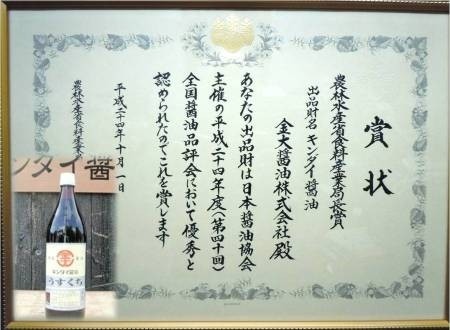 賞状
農林水産省食料産業局長賞
出品財名 キンダイ醤油
金大醤油株式会社殿
あなたの出品財は日本醤油協会
主催の平成二十四年度(第四十回)
全国醤油品評会において優秀と
認められたのでこれを賞します
平成二十四年十月一日
農林水産省食料産業局長
ンダイ醤
キンダイ醤油
うすくち